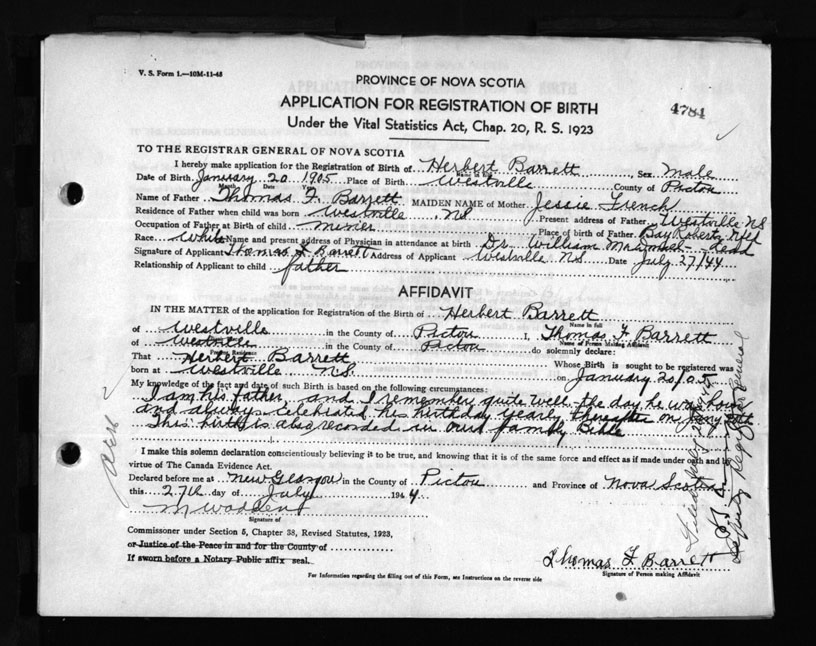 V. S. Form 1.—10M-11-45
PROVINCE OF NOVA SCOTIA
APPLICATION FOR REGISTRATION OF BIRTH
4784
Under the Vital Statistics Act, Chap. 20, R. S. 1923
TO THE REGISTRAR GENERAL OF NOVA SCOTIA
I hereby make application for the Registration of Birth of Herbert Barrett, Sex Male
Date of Birth January 20 1905 Place of Birth Westville County of Pictou
Month Date Year Name in full
Name of Father Thomas F. Barrett MAIDEN NAME of Mother Jessie French
Residence of Father when child was born Westville NS Present address of Father Westville NS
Occupation of Father at Birth of child Minier Place of Birth of Father Bay Roberts Nfld
Race White Name and present address of Physician in attendance at birth Dr William Dead
Signature of Applicant Thomas F Barrett Address of Applicant Westville NS Date July 27/44
Relationship of Applicant to child father
AFFIDAVIT
IN THE MATTER of the application for Registration of the Birth of Herbert Barrett
Name in full
of Westville in the County of Pictou I, Thomas F Barrett
Name of Person Making Affidavit
of Westville in the County of Pictou do solemnly declare:
Present Residence
That Herbert Barrett Whose Birth is sought to be registered was
born at Westville N.S. on January 20/05
My knowledge of the fact and date of such Birth is based on the following circumstances:
I am his father, and I remember quite well the day he was born
and always celebrated his birthday yearly
This birth is also recorded in our family Bible
I make this solemn declaration conscientiously believing it to be true, and knowing that it is of the same force and effect as if made under oath and by
virtue of The Canada Evidence Act.
Declared before me at New Glasgow in the County of Pictou and Province of Nova Scotia
this 27th day of July 1944
Signature of
Commissoner under Section 5, Chapter 38, Revised Statutes, 1923,
or Justice of the Peace in and for the County of
If sworn before a Notary Public affix seal.
Thomas F Barrett
Signature of Person making Affidavit
For Information regarding the filling out of this Form, see Instructions on the reverse side
Deputy Registrar General